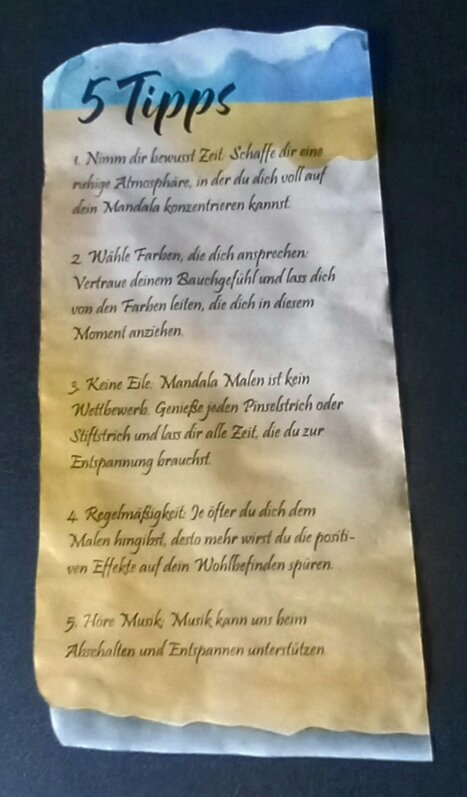 5 Tipps
1. Nimm dir bewusst Zeit: Schaffe dir eine
ruhige Atmosphäre, in der du dich voll auf
dein Mandala konzentrieren kannst.
2. Wähle Farben, die dich ansprechen:
Vertraue deinem Bauchgefühl und lass dich
von den Farben leiten, die dich in diesem
Moment anziehen.
3. Keine Eile: Mandala Malen ist kein
Wettbewerb. Genieße jeden Pinselstrich oder
Stiftstrich und lass dir alle Zeit, die du zur
Entspannung brauchst.
4. Regelmäßigkeit: Je öfter du dich dem
Malen hingibst, desto mehr wirst du die positi-
ven Effekte auf dein Wohlbefinden spüren.
5. Höre Musik: Musik kann uns beim
Abschalten und Entspannen unterstützen.